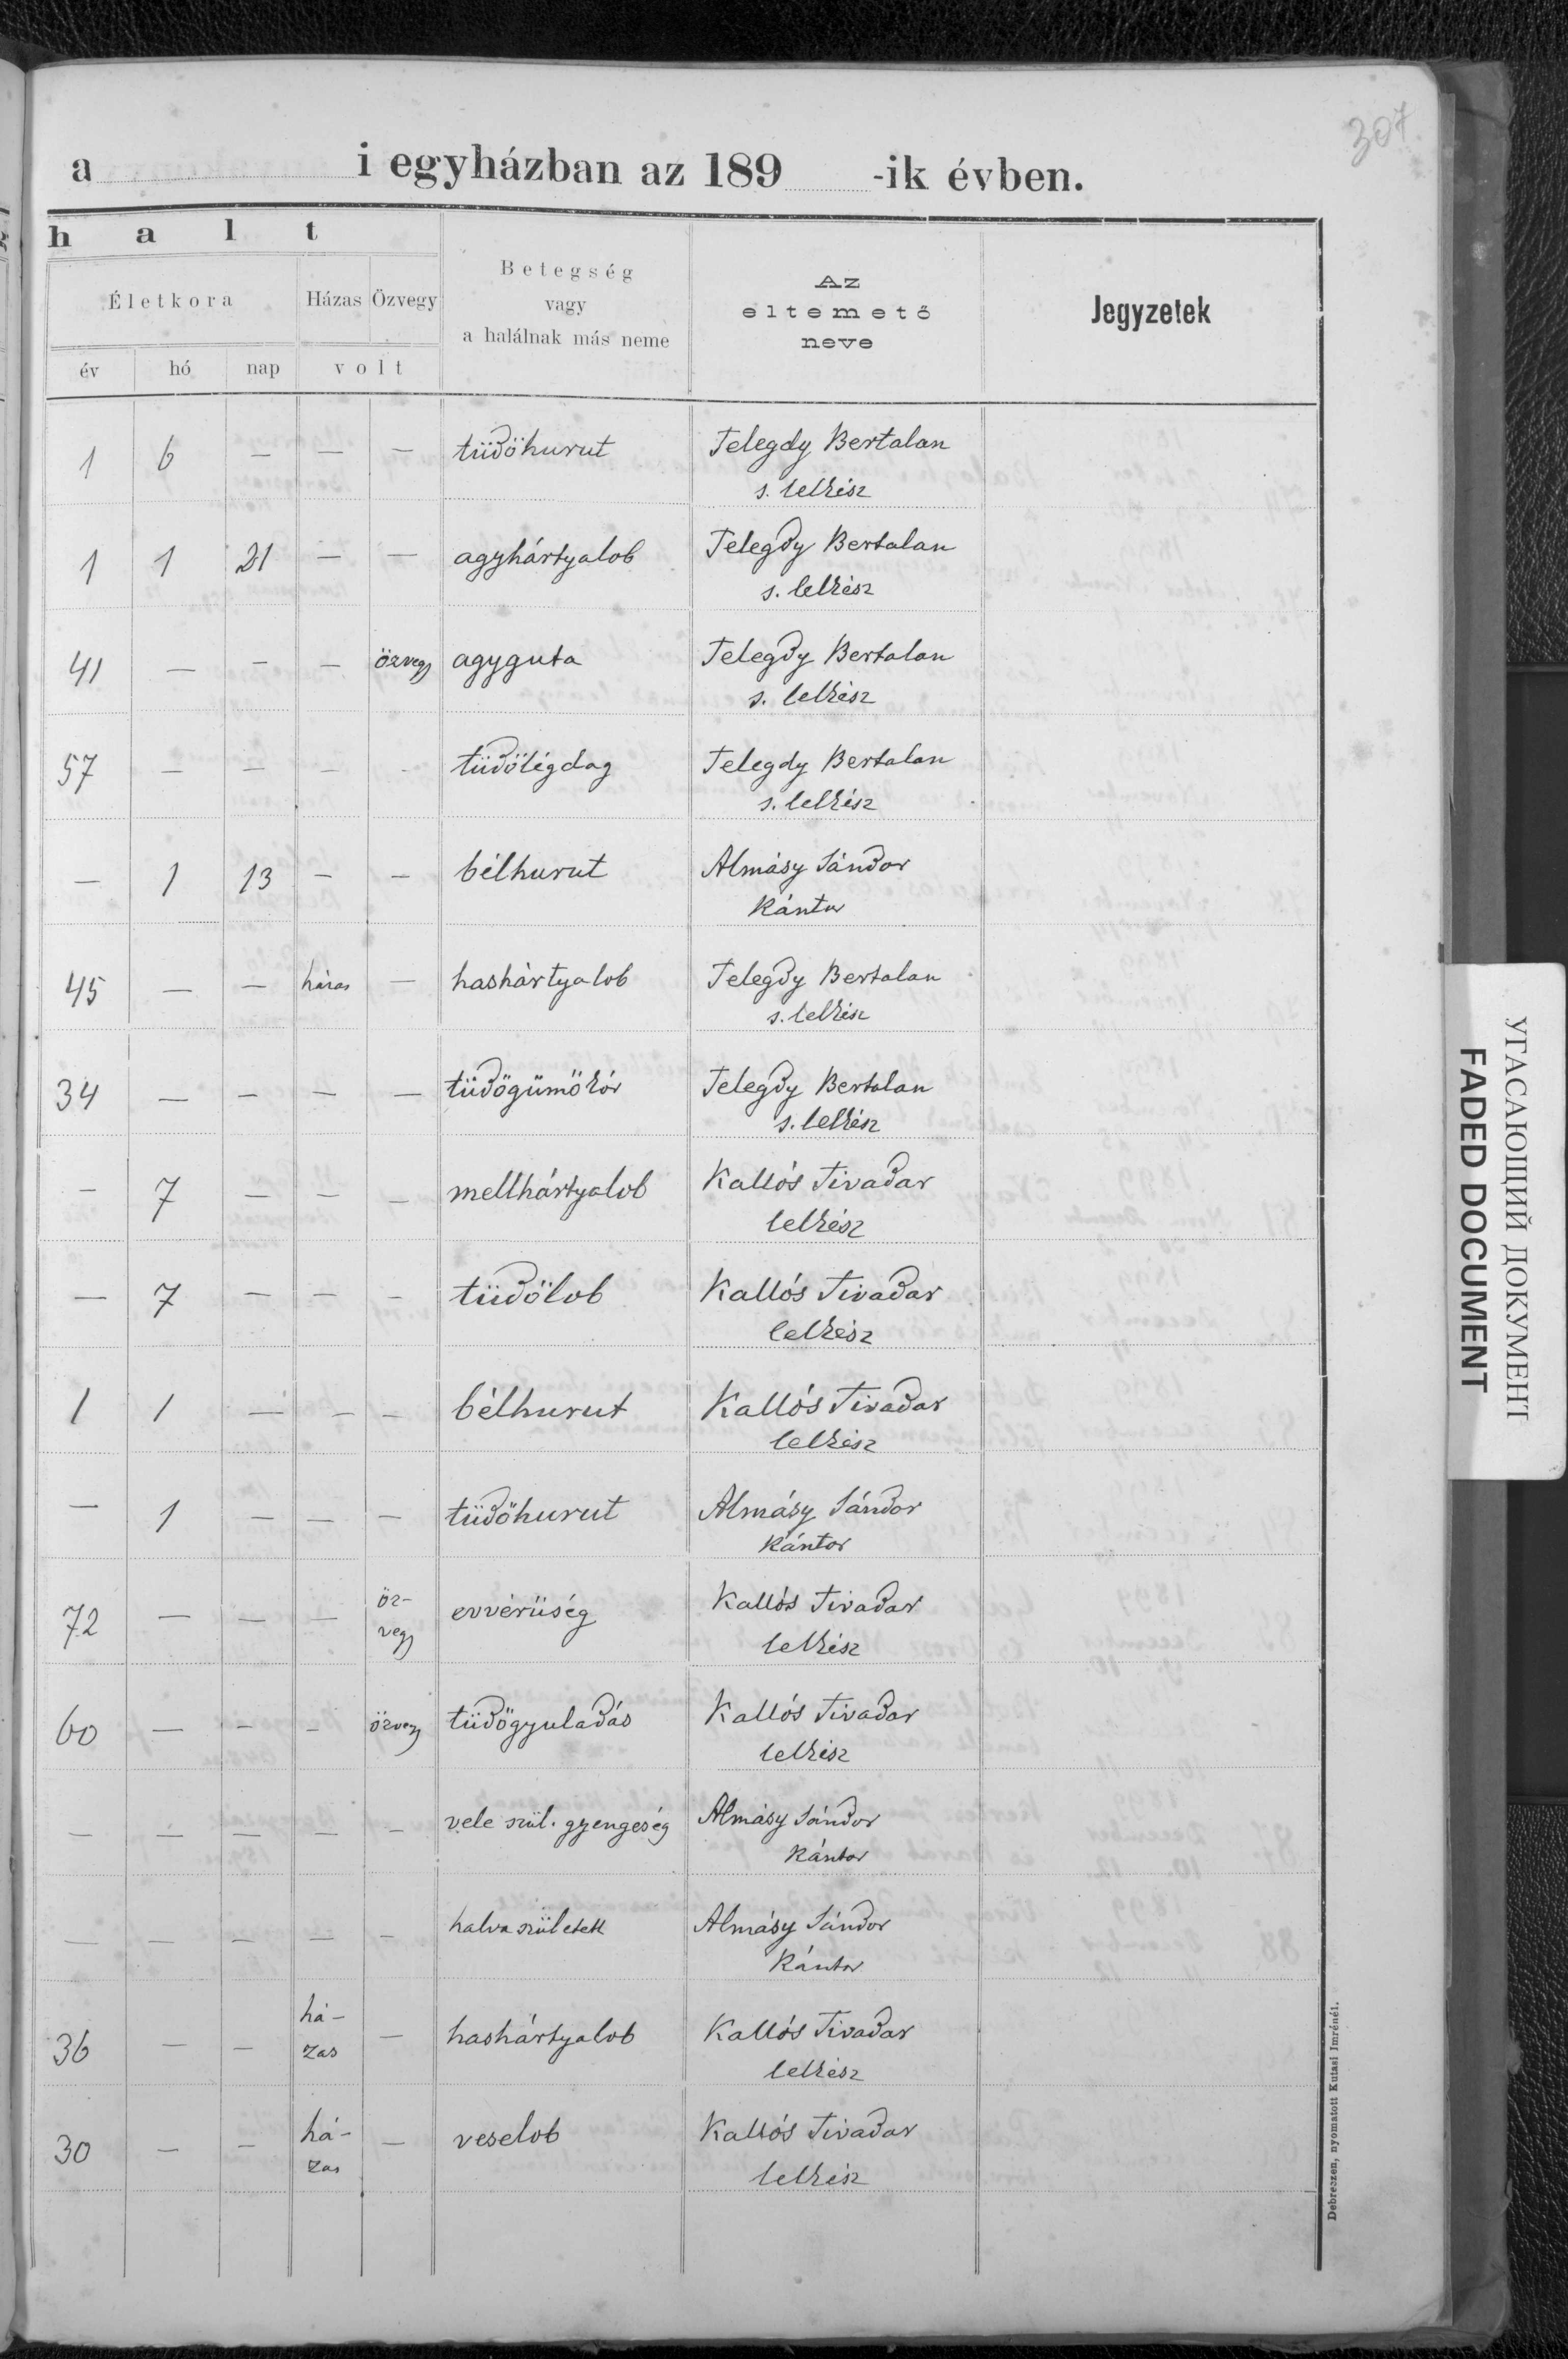 307
a i egyházban az 189 -ik évben.
h a l t
Életkora Házas Özvegy Betegség vagy a halálnak más neme Az eltemető neve Jegyzetek
év hó nap volt
1 6 — — — tüdőhurut Telegdy Bertalan
s. lelkész
1 1 21 — — agyhártyalob Telegdy Bertalan
s. lelkész
41 — — — özvegy agyguta Telegdy Bertalan
s. lelkész
57 — — — — tüdőlégdag Telegdy Bertalan
s. lelkész
— 1 13 — — bélhurut Almásy Sándor
kántor
45 — — házas — hashártyalob Telegdy Bertalan
s. lelkész
34 — — — — tüdőgümőkór Telegdy Bertalan
s. lelkész
— 7 — — — mellhártyalob Kallós Tivadar
lelkész
— 7 — — — tüdőlob Kallós Tivadar
lelkész
1 1 — — — bélhurut Kallós Tivadar
lelkész
— 1 — — — tüdőhurut Almásy Sándor
kántor
72 — — — öz- evvérüség Kallós Tivadar
vegy lelkész
60 — — — özvegy tüdőgyuladás Kallós Tivadar
lelkész
— — — — — vele szül. gyengeség Almásy Sándor
kántor
— — — — — halva született Almásy Sándor
kántor
36 — — há- — hashártyalob Kallós Tivadar
zas lelkész
30 — — há- — veselob Kallós Tivadar
zas lelkész
Debreczen, nyomatott Kutasi Imrénél.
УГАСАЮЩИЙ ДОКУМЕНТ
FADED DOCUMENT